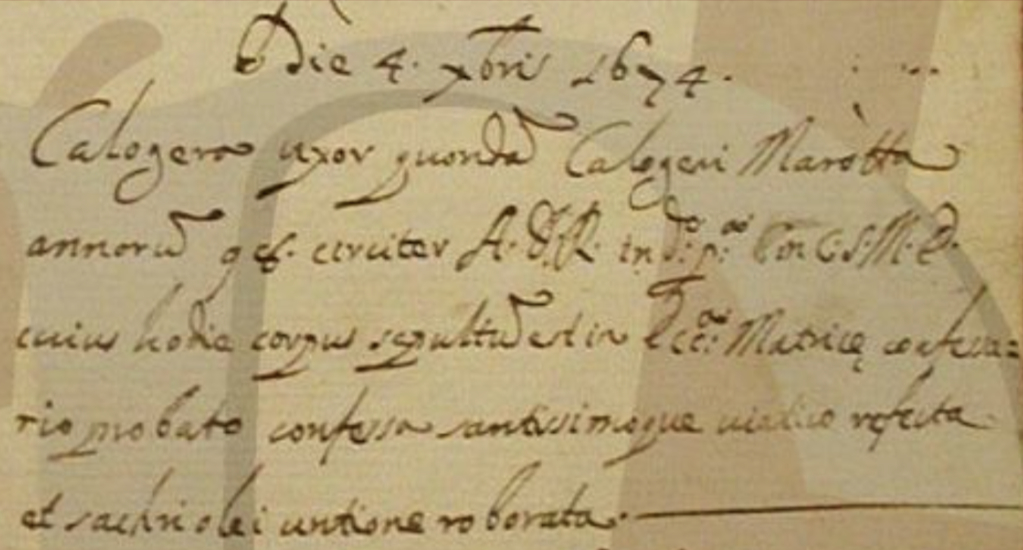 Die 4. xbris 1674.
Calogera uxor quondã Calogeri Maròtta
annorũ 96. circiter A.D.R. in d.ⁿ p.ᵃ C.S.M.E.
cuius hodie corpus sepultũ est in Ecc.ᵃ Matrice confessa=
rio probato confessa santissimoque viatico refecta
et sachri olei untione roborata.